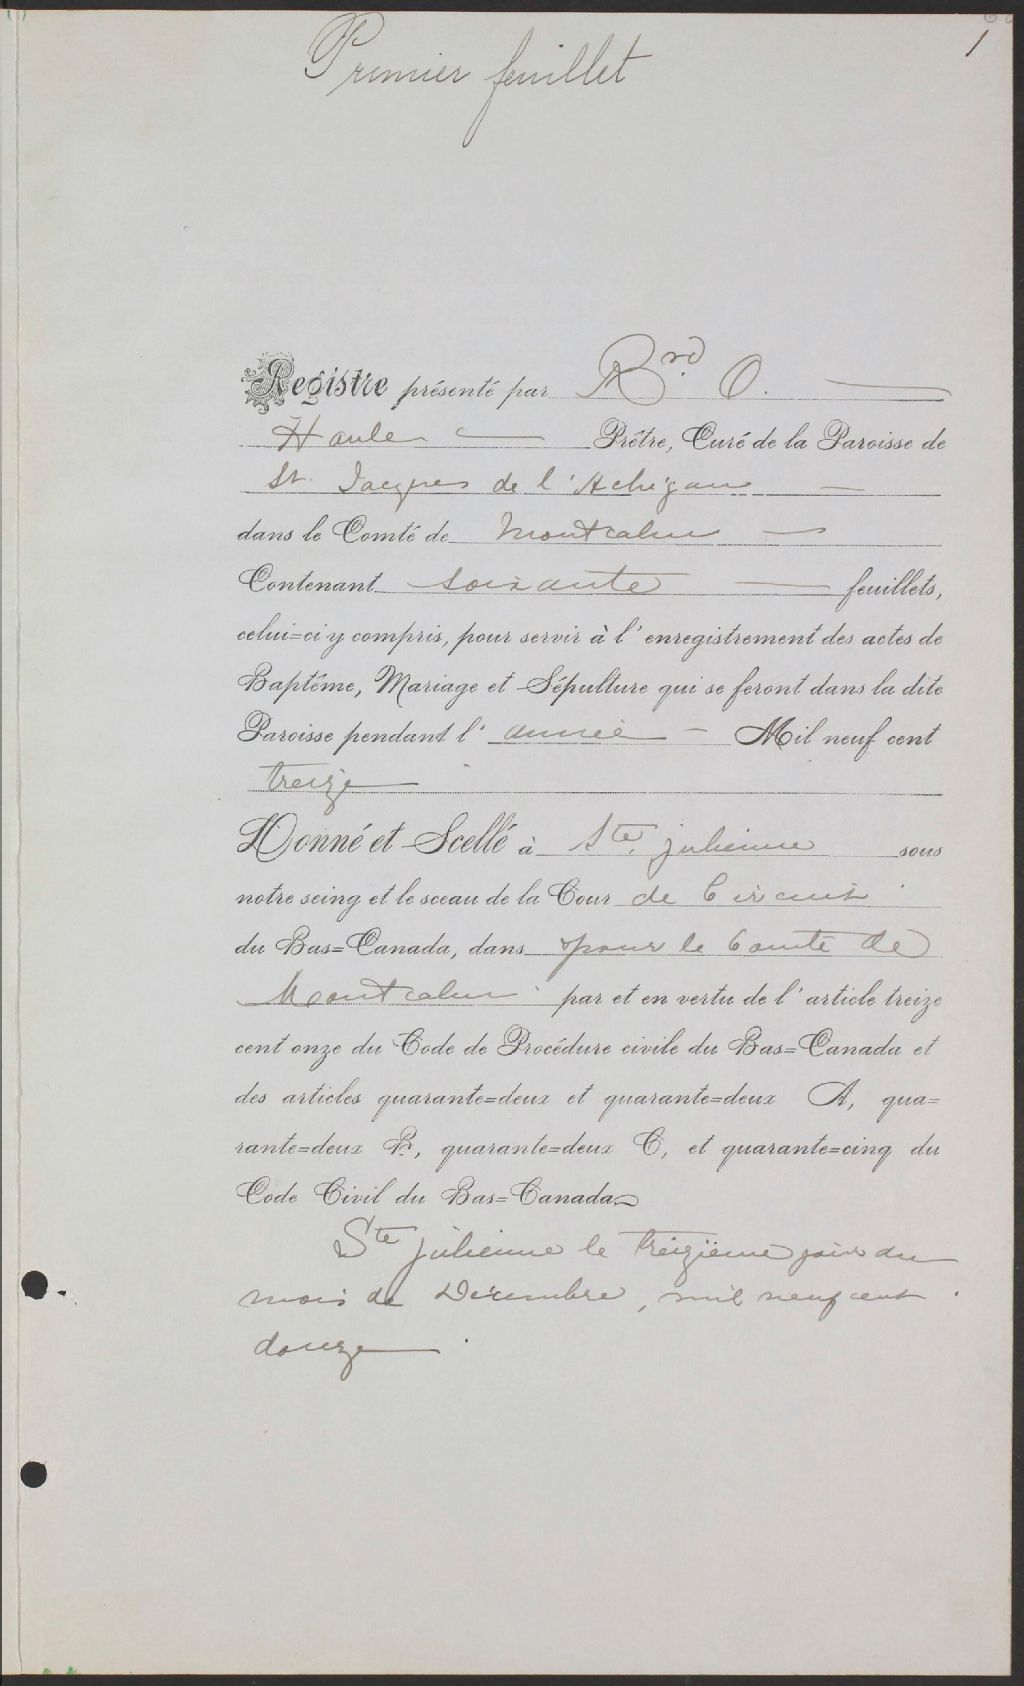 1
Premier feuillet
Registre présenté par Rrd. O.
Houle Prêtre, Curé de la Paroisse de
St. Jacques de l'Achigan
dans le Comté de Montcalm
Contenant soixante feuillets,
celui=ci y compris, pour servir à l'enregistrement des actes de
Baptême, Mariage et Sépulture qui se feront dans la dite
Paroisse pendant l'année Mil neuf cent
treize
Donné et Scellé à Ste. Julienne sous
notre seing et le sceau de la Cour de Circuit
du Bas=Canada, dans pour le Comté de
Montcalm par et en vertu de l'article treize
cent onze du Code de Procédure civile du Bas=Canada et
des articles quarante=deux et quarante=deux A, qua=
rante=deux B, quarante=deux C, et quarante=cinq du
Code Civil du Bas=Canada
Ste Julienne le treizième jour du
mois de Décembre, mil neuf cent
douze